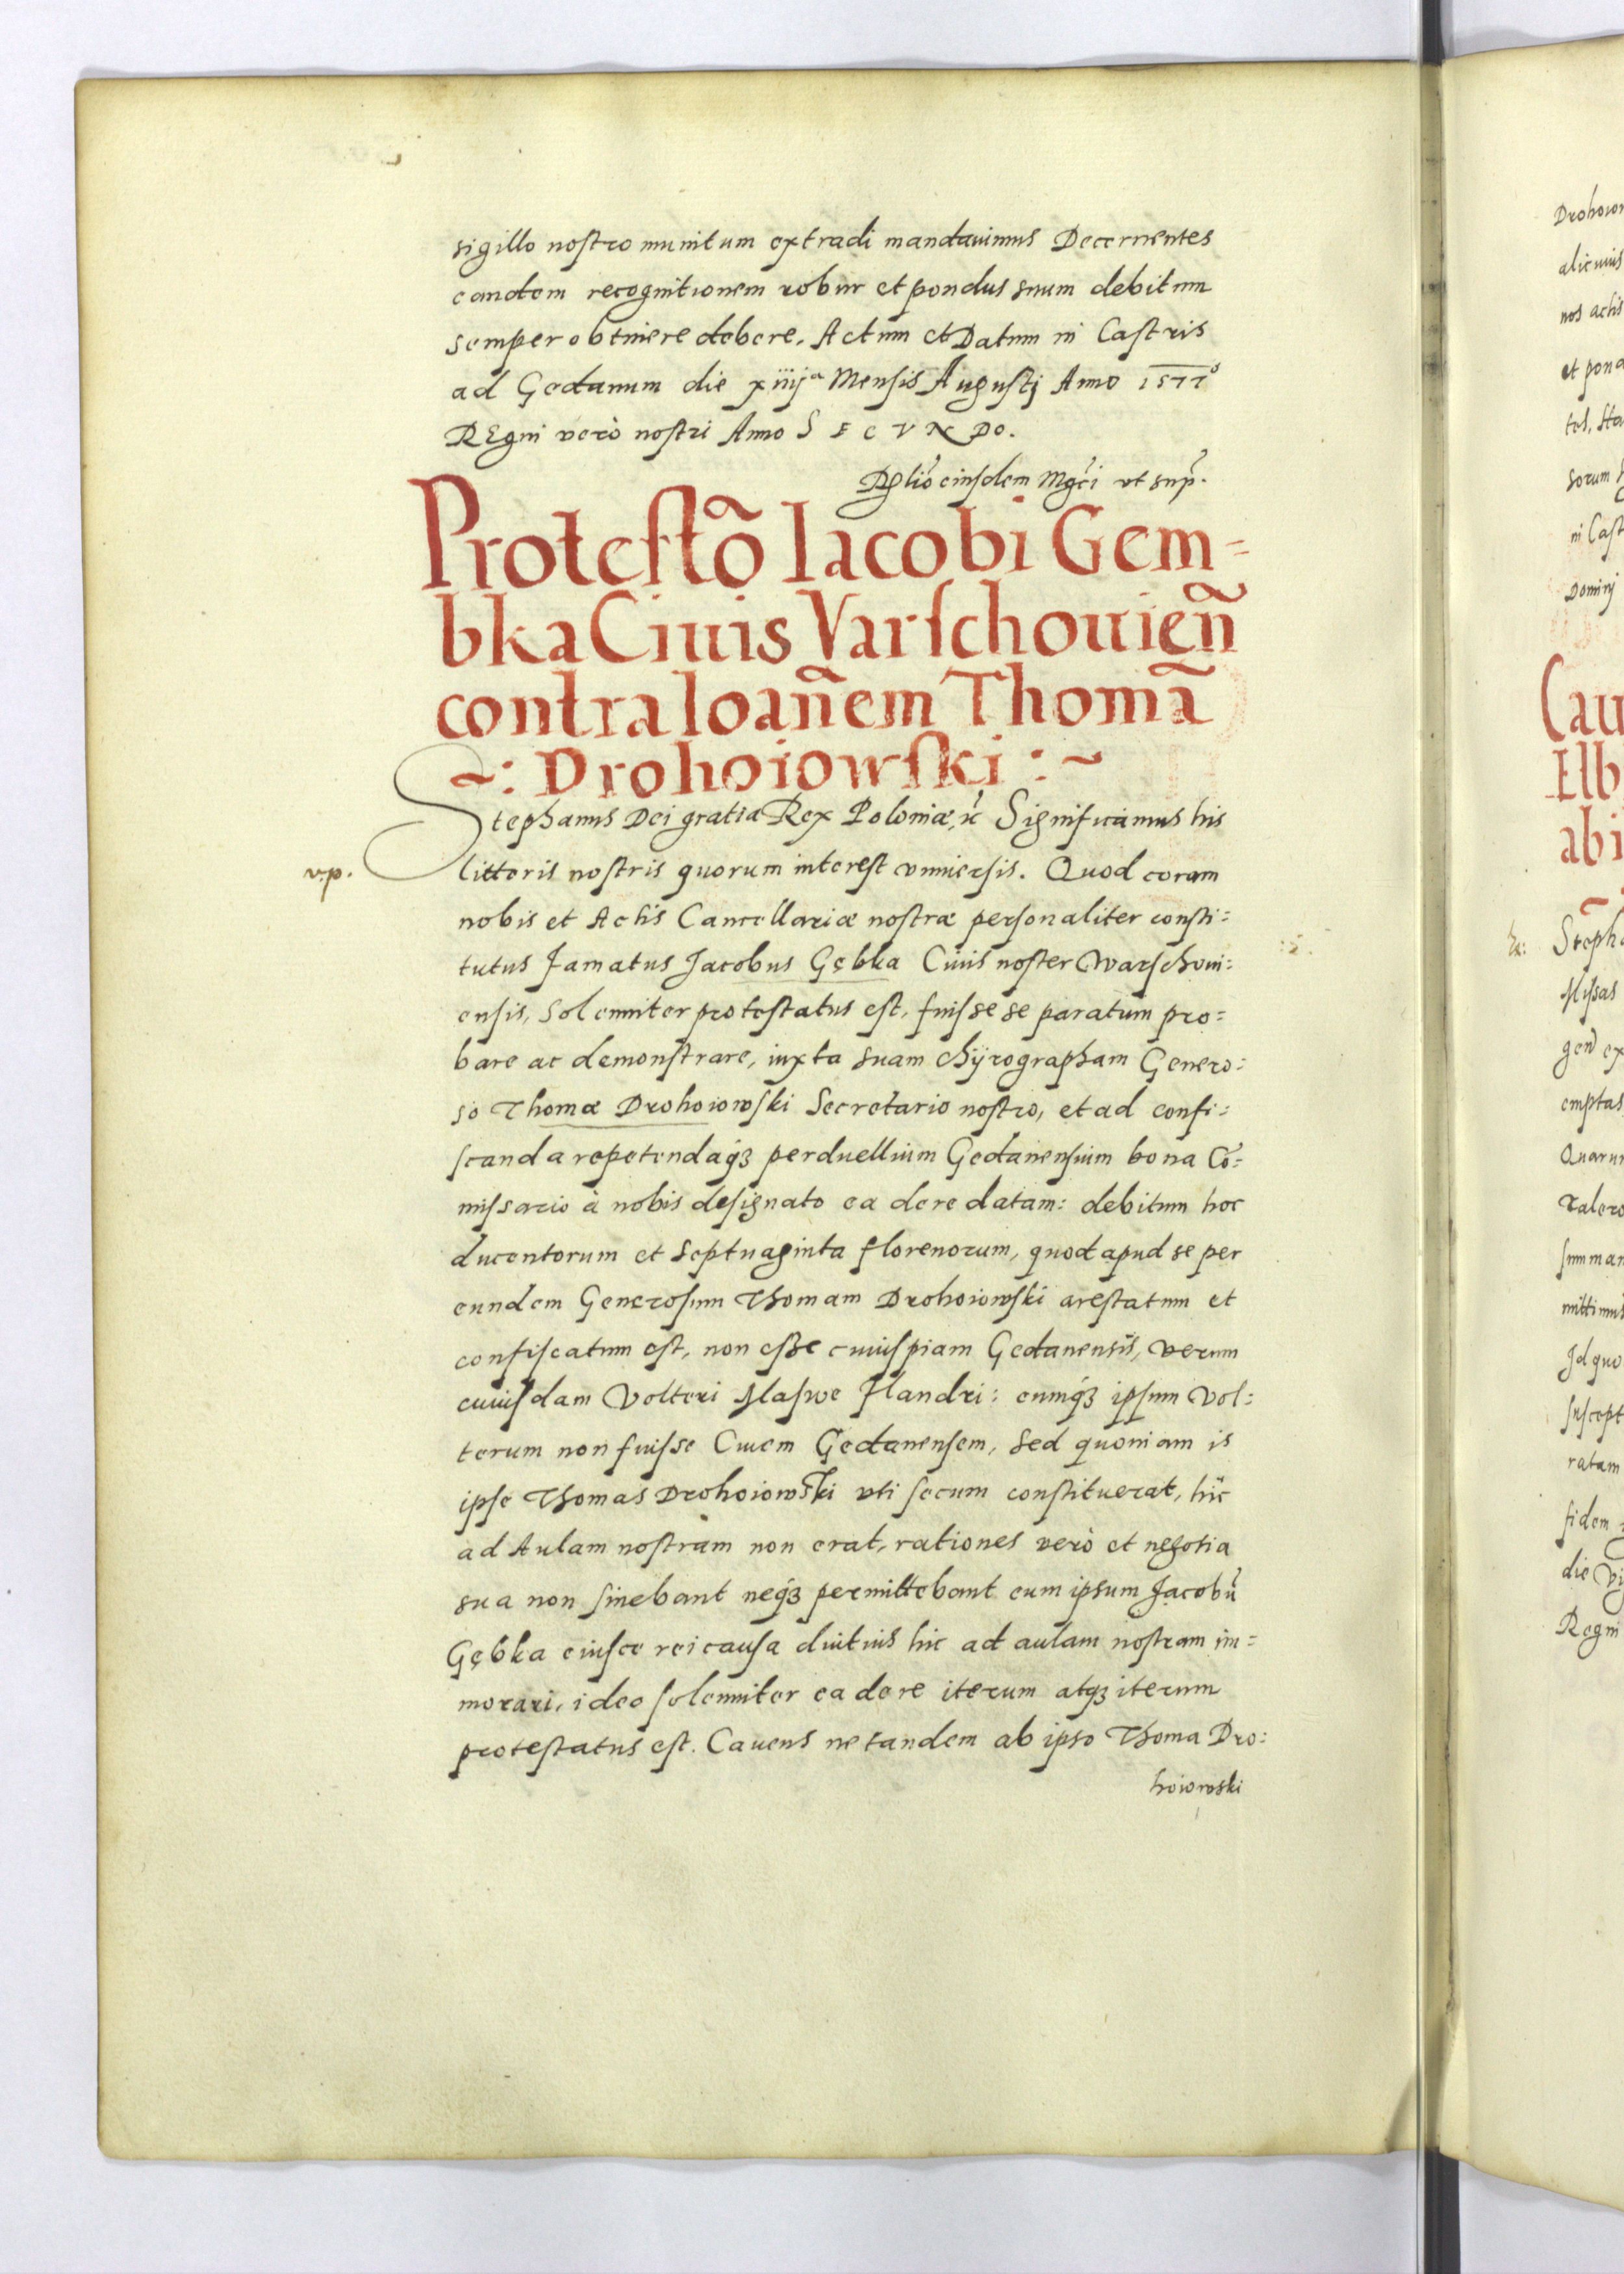 sigillo nostro munitum extradi mandauimus Decernentes
eandem recognitionem robur et pondus suum debitum
semper obtinere debere. Actum et Datum in Castris
ad Gedanum die xiiijª Mensis Augustj Anno 1577º
REgni verò nostri Anno S E C V N DO.
Rȩlio eiusdem Mgci vt sup.
Protestõ Iacobi Gem=
bka Ciuis Varschouieñ
contra Ioañem Thomã
~: Drohoiowski :~
Stephanus Dei gratia Rex Poloniæ, &c Significamus his
v.p.
litteris nostris quorum interest vniuersis. Quod coram
nobis et Actis Cancellariæ nostræ personaliter consti=
tutus famatus Jacobus Gębka Ciuis noster Warschoui=
ensis, Solenniter protestatus est, fuisse se paratum pro=
bare ac demonstrare, iuxta suam chÿrographam Genero=
so Thomæ Drohoiowski Secretario nostro, et ad confi=
scanda repetendaq́ʒ perduellium Gedanensium bona Cõ=
missario à nobis designato ea de re datam: debitum hoc
ducentorum et Septuaginta florenorum, quod apud se per
eundem Generosum Thomam Drohoiowski arestatum et
confiscatum est, non esse cuiuspiam Gedanensis, verum
cuiusdam Volteri Maswe Flandri: eumq́ʒ ipsum Vol=
terum non fuisse Ciuem Gedanensem, Sed quoniam is
ipse Thomas Drohoiowski vti secum constituerat, hic
ad Aulam nostram non erat, rationes verò et negotia
sua non sinebant neq́ʒ permittebant eum ipsum Jacobũ
Gębka eiusce rei causa diutius hic ad aulam nostram im=
morari, ideo solenniter ea de re iterum atqʒ iterum
protestatus est. Cauens ne tandem ab ipso Thoma Dro=
hoiowski
Drohoiow
alicuius
nos actis
et pond
tes, Sta
sorum
in Cast
Dominj
Cau
Elb
abi
Steph
Missas
gen ex
emptas
Quarum
Talero
summam
mittimus
Id quo
suscept
ratam
fidem
die
Regni